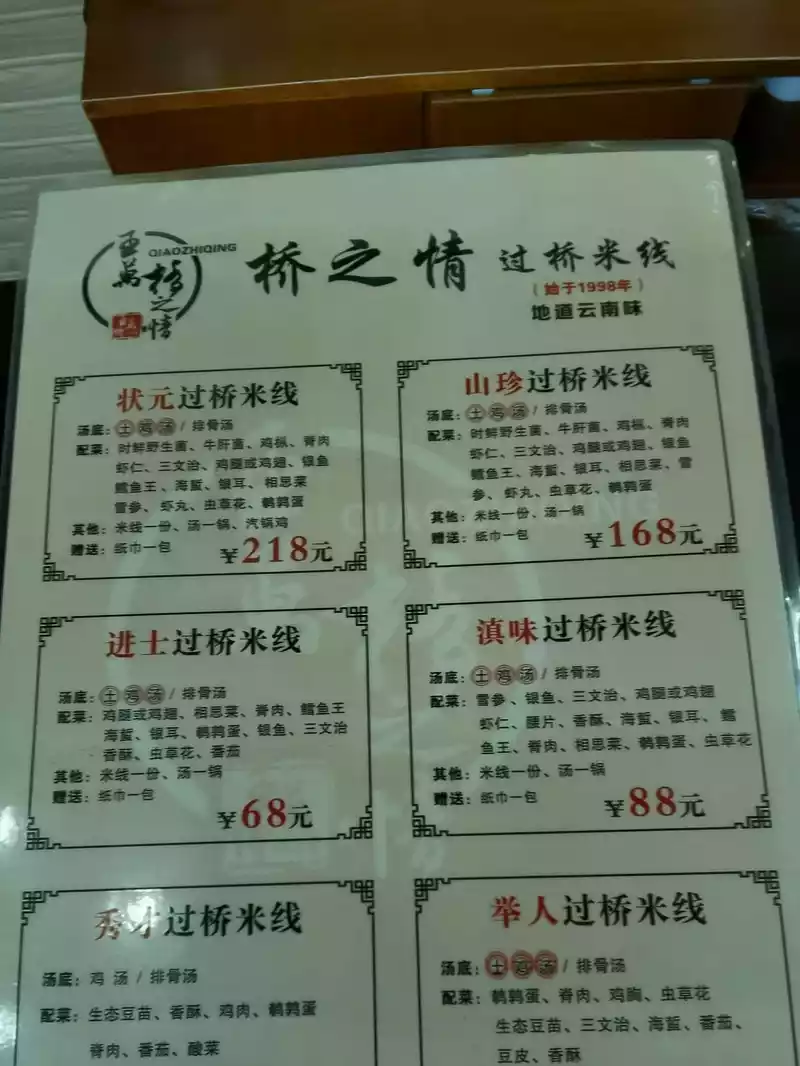 QIAOZHIQING
桥之情
桥之情 过桥米线
(始于1998年)
地道云南味
状元过桥米线
汤底：土鸡汤 / 排骨汤
配菜：时鲜野生菌、牛肝菌、鸡枞、脊肉
虾仁、三文治、鸡腿或鸡翅、银鱼
鳕鱼王、海蜇、银耳、相思菜
雪参、虾丸、虫草花、鹌鹑蛋
其他：米线一份、汤一锅、汽锅鸡
赠送：纸巾一包
¥218元
山珍过桥米线
汤底：土鸡汤 / 排骨汤
配菜：时鲜野生菌、牛肝菌、鸡枞、脊肉
虾仁、三文治、鸡腿或鸡翅、银鱼
鳕鱼王、海蜇、银耳、相思菜、雪
参、虾丸、虫草花、鹌鹑蛋
其他：米线一份、汤一锅
赠送：纸巾一包
¥168元
进士过桥米线
汤底：土鸡汤 / 排骨汤
配菜：鸡腿或鸡翅、相思菜、脊肉、鳕鱼王
海蜇、银耳、鹌鹑蛋、银鱼、三文治
香酥、虫草花、番茄
其他：米线一份、汤一锅
赠送：纸巾一包
¥68元
滇味过桥米线
汤底：土鸡汤 / 排骨汤
配菜：雪参、银鱼、三文治、鸡腿或鸡翅
虾仁、腰片、香酥、海蜇、银耳、鳕
鱼王、脊肉、相思菜、鹌鹑蛋、虫草花
其他：米线一份、汤一锅
赠送：纸巾一包
¥88元
秀才过桥米线
汤底：鸡汤 / 排骨汤
配菜：生态豆苗、香酥、鸡肉、鹌鹑蛋
脊肉、番茄、酸菜
举人过桥米线
汤底：土鸡汤 / 排骨汤
配菜：鹌鹑蛋、脊肉、鸡胸、虫草花
生态豆苗、三文治、海蜇、番茄、
豆皮、香酥